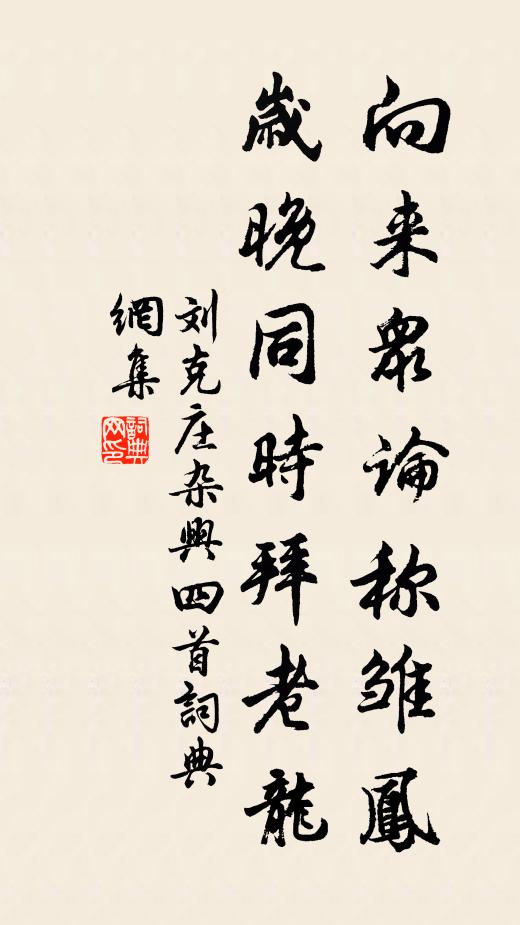 向来眾論称雏鳳
歲晚同時拜老龍
刘克庄杂興四首詞典
網集
詞典网印